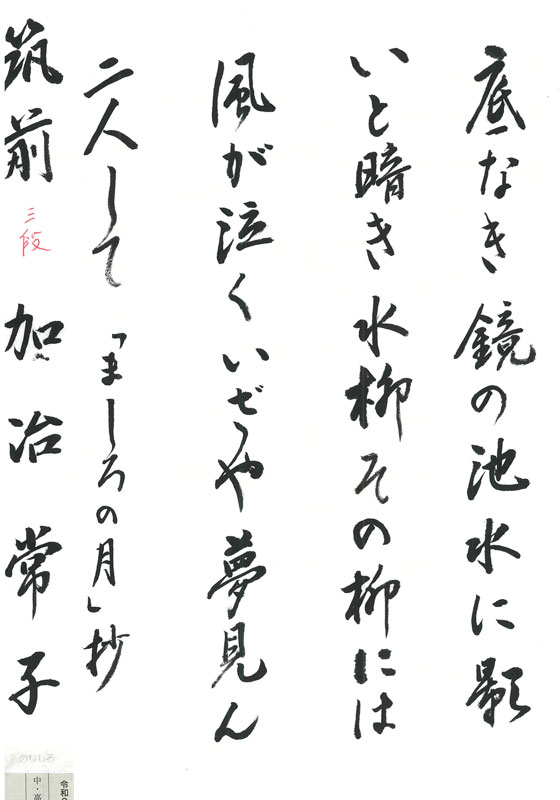 底なき鏡の池水に影
いと暗き水柳その柳には
風が泣くいざや夢見ん
二人して「ましろの月」抄
筑前 三段 加治常子
令和
中・高